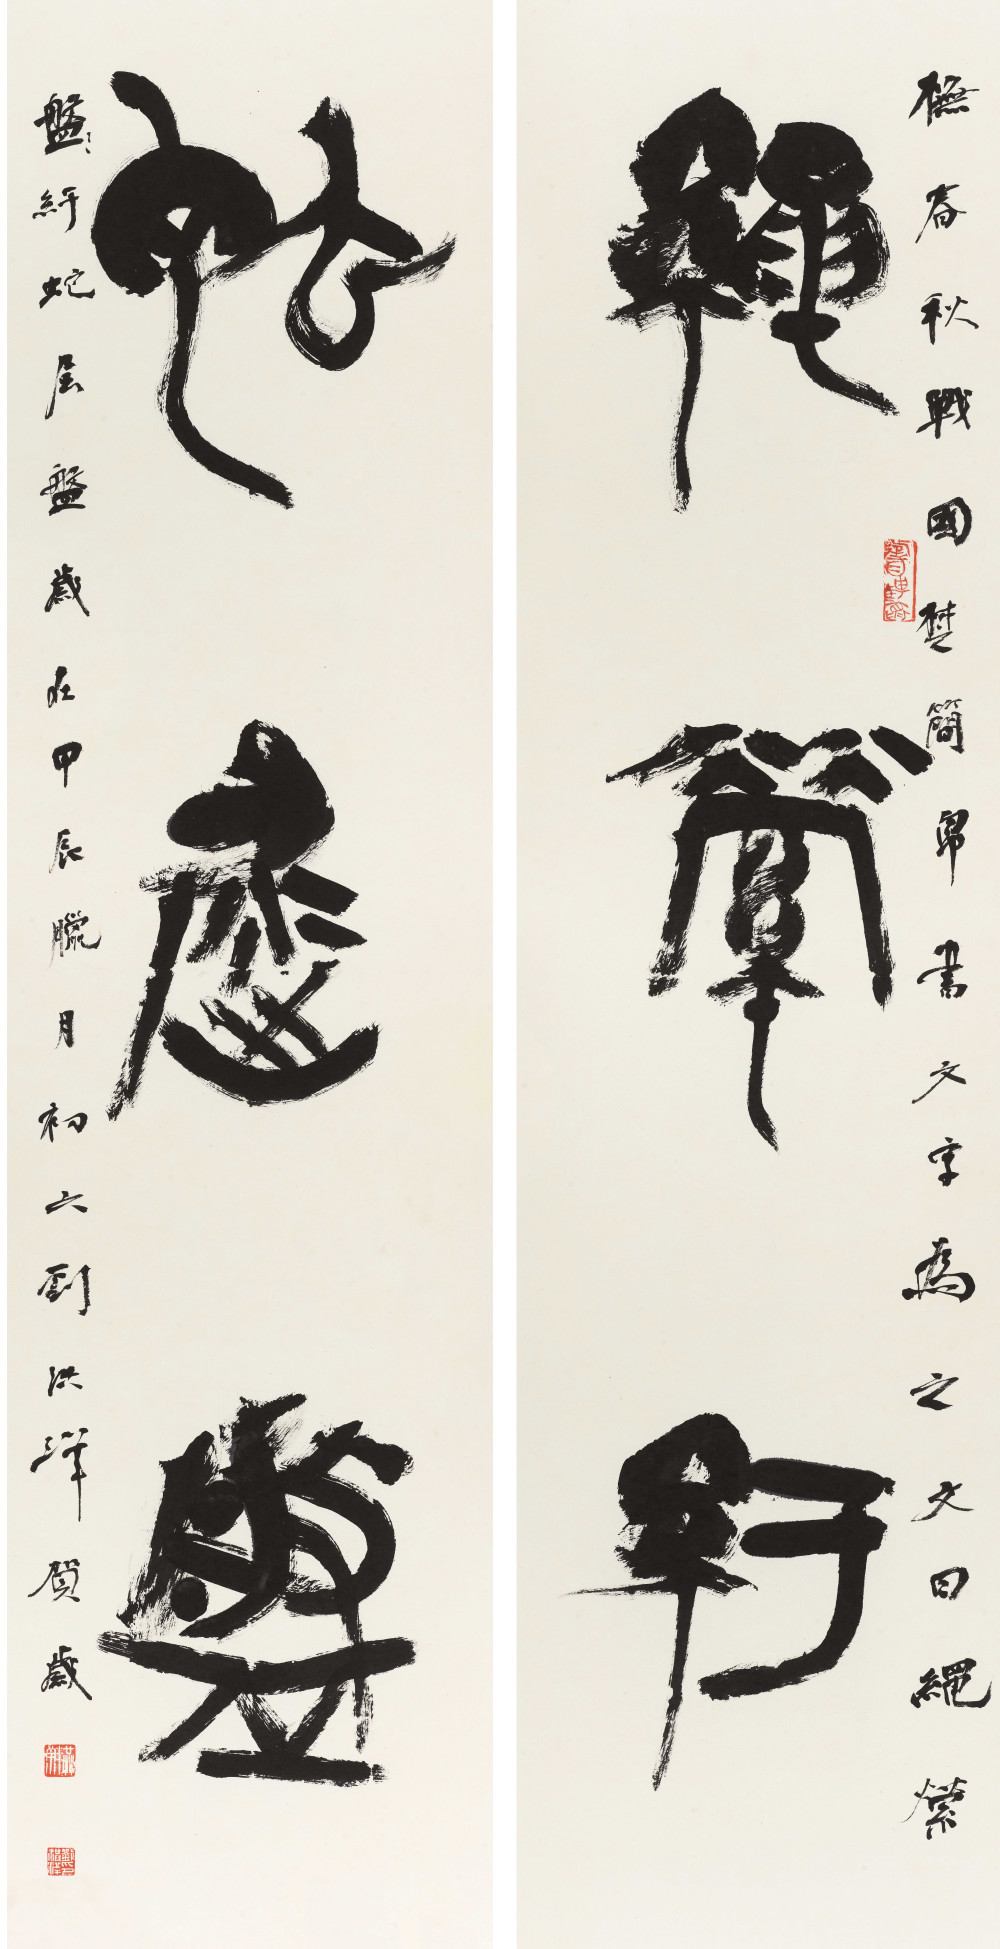 橅春秋戰國楚簡帛書文字為之文曰繩縈
繩縈紆
蛇盤
盤紆蛇盤歲在甲辰臘月初六劉洪洋賀歲